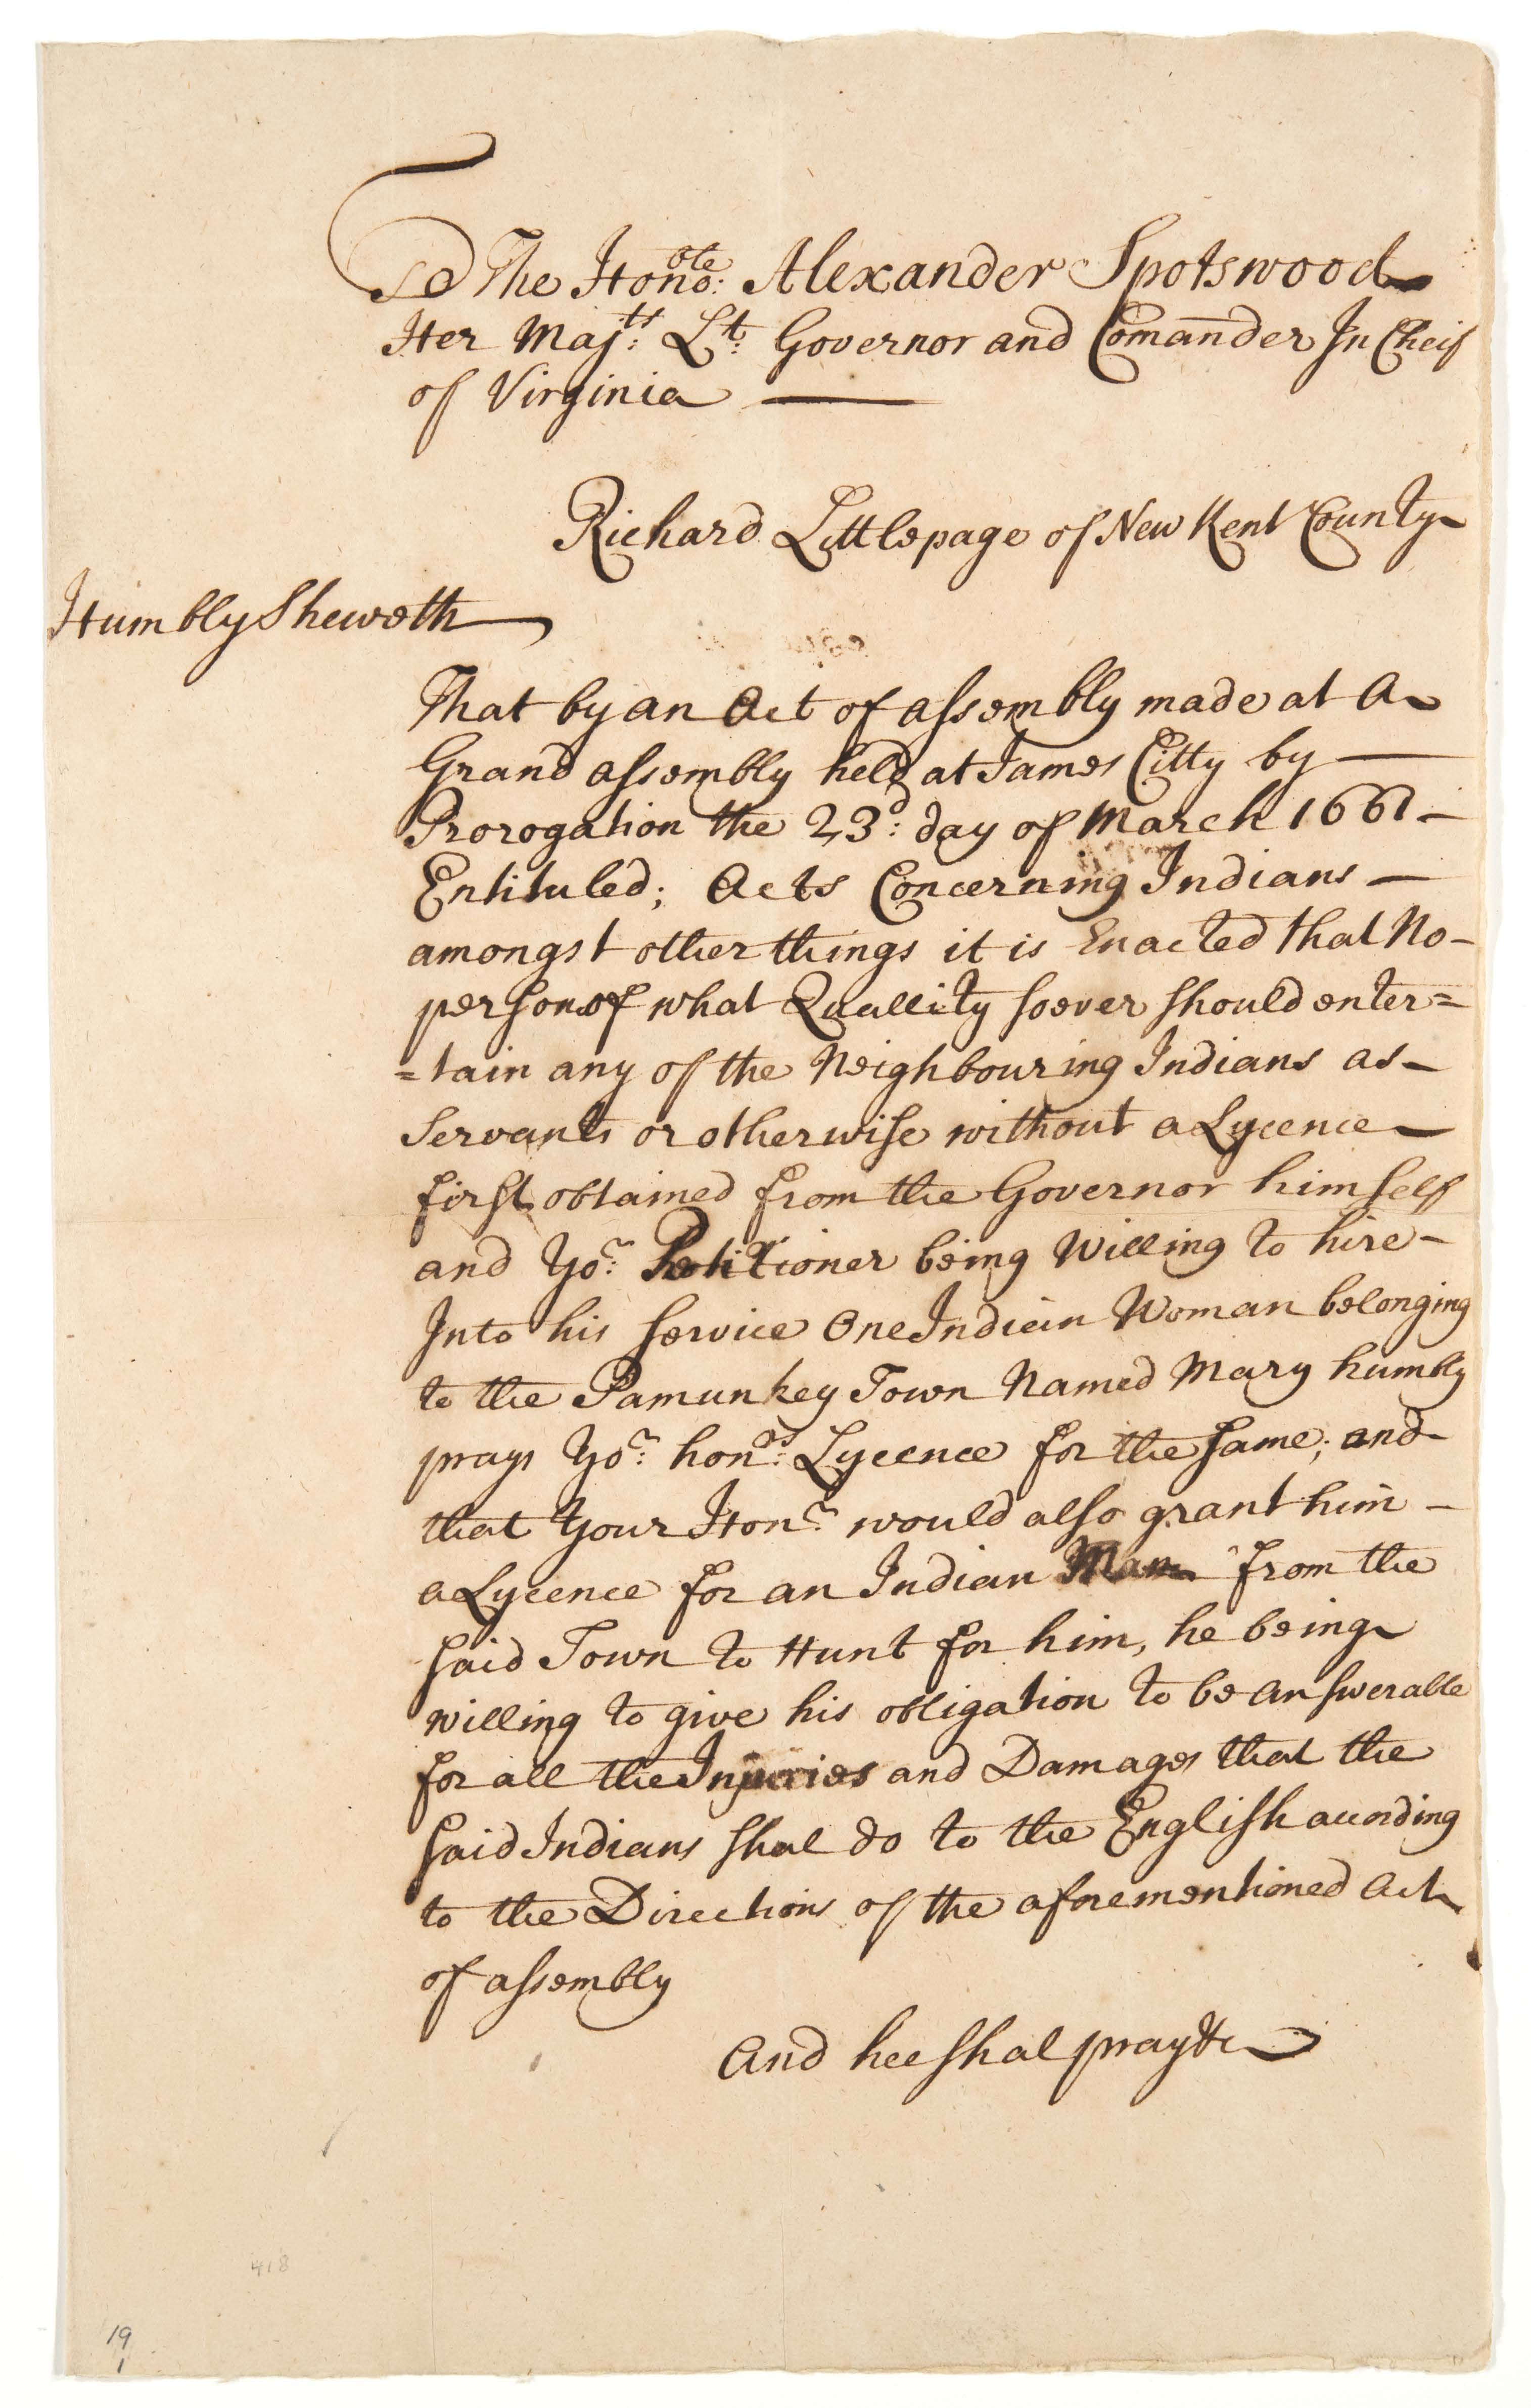 To The Honoble: Alexander Spotswood
Her Majts: Lt: Governor and Comander In Cheif
of Virginia
Richard Littlepage of New Kent County
Humbly Sheweth
That by an Act of assembly made at A
Grand assembly held at James Citty by
Prorogation the 23d: day of March 1661
Entituled; Acts Concerning Indians
amongst other things it is Enacted that No
person of what Quallity soever should enter=
=tain any of the Neighbouring Indians as
Servants or otherwise without a Lycence
first obtained from the Governor himself
and Yor: Petitioner being Willing to hire
Into his service One Indian Woman belonging
to the Pamunkey Town Named Mary humbly
prays Yor: honrs: Lycence for the same; and
that Your Honr: would also grant him
a Lycence for an Indian Man from the
said Town to Hunt for him, he being
willing to give his obligation to be answerable
for all the Injuries and Damages that the
said Indians shal do to the English according
to the Directions of the aforementioned Act
of assembly
And hee shal pray &c
418
19
1